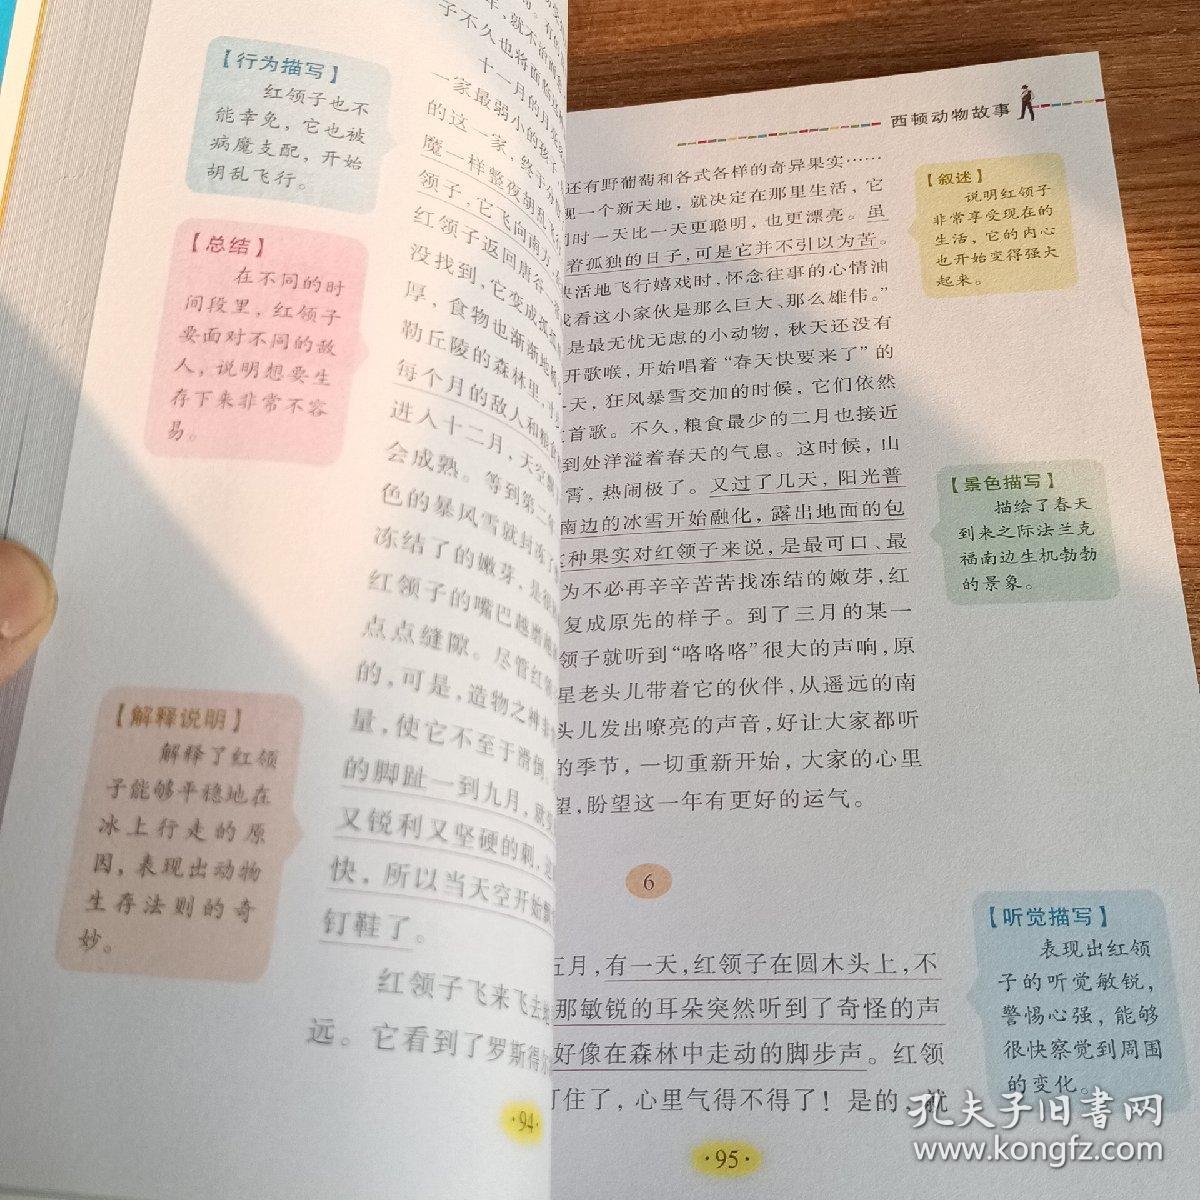 【行为描写】
红领子也不
能幸免，它也被
病魔支配，开始
胡乱飞行。
【总结】
在不同的时
间段里，红领子
要面对不同的敌
人，说明想要生
存下来非常不容
易。
【解释说明】
解释了红领
子能够平稳地在
冰上行走的原
因，表现出动物
生存法则的奇
妙。
年，就不治而
子不久也将面临
十一月的月
一家最弱小的孩子
的这一家，终于
魔一样整夜胡乱飞行
领子，它飞向南方
红领子返回唐谷
没找到，它变成孤
厚，食物也渐渐地
勒丘陵的森林里，
每个月的敌人和粮食
进入十二月，天空飘
会成熟。等到第二
色的暴风雪就封冻了
冻结了的嫩芽，是很
红领子的嘴巴越磨越
点点缝隙。尽管红领
的，可是，造物之神
量，使它不至于滑倒。
的脚趾一到九月，就
又锐利又坚硬的刺，这
快，所以当天空开始飘
钉鞋了。
红领子飞来飞去地
远。它看到了罗斯得尔
·94·
西顿动物故事
还有野葡萄和各式各样的奇异果实……
现一个新天地，就决定在那里生活，它
同时一天比一天更聪明，也更漂亮。虽
着孤独的日子，可是它并不引以为苦。
快活地飞行嬉戏时，怀念往事的心情油
我看这小家伙是那么巨大、那么雄伟。”
是最无忧无虑的小动物，秋天还没有
开歌喉，开始唱着“春天快要来了”的
一天，狂风暴雪交加的时候，它们依然
首歌。不久，粮食最少的二月也接近
到处洋溢着春天的气息。这时候，山
霄，热闹极了。又过了几天，阳光普
南边的冰雪开始融化，露出地面的包
这种果实对红领子来说，是最可口、最
为不必再辛辛苦苦找冻结的嫩芽，红
复成原先的样子。到了三月的某一
领子就听到“咯咯咯”很大的声响，原
星老头儿带着它的伙伴，从遥远的南
头儿发出嘹亮的声音，好让大家都听
的季节，一切重新开始，大家的心里
望，盼望这一年有更好的运气。
6
五月，有一天，红领子在圆木头上，不
那敏锐的耳朵突然听到了奇怪的声
好像在森林中走动的脚步声。红领
住了，心里气得不得了！是的，就
·95·
【叙述】
说明红领子
非常享受现在的
生活，它的内心
也开始变得强大
起来。
【景色描写】
描绘了春天
到来之际法兰克
福南边生机勃勃
的景象。
【听觉描写】
表现出红领
子的听觉敏锐，
警惕心强，能够
很快察觉到周围
的变化。
孔夫子旧书网
www.kongfz.com